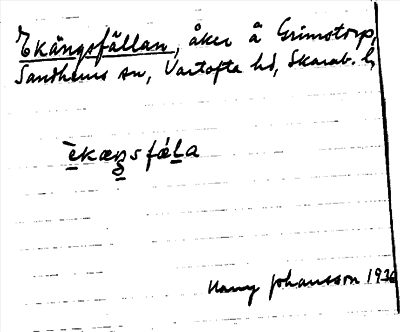 Ekängsfällan, åker å Grimstorp,
Sandhems sn, Vartofta hd, Skarab. l.
èkæŋsfæ̀ḷa
Harry Johansson 1926